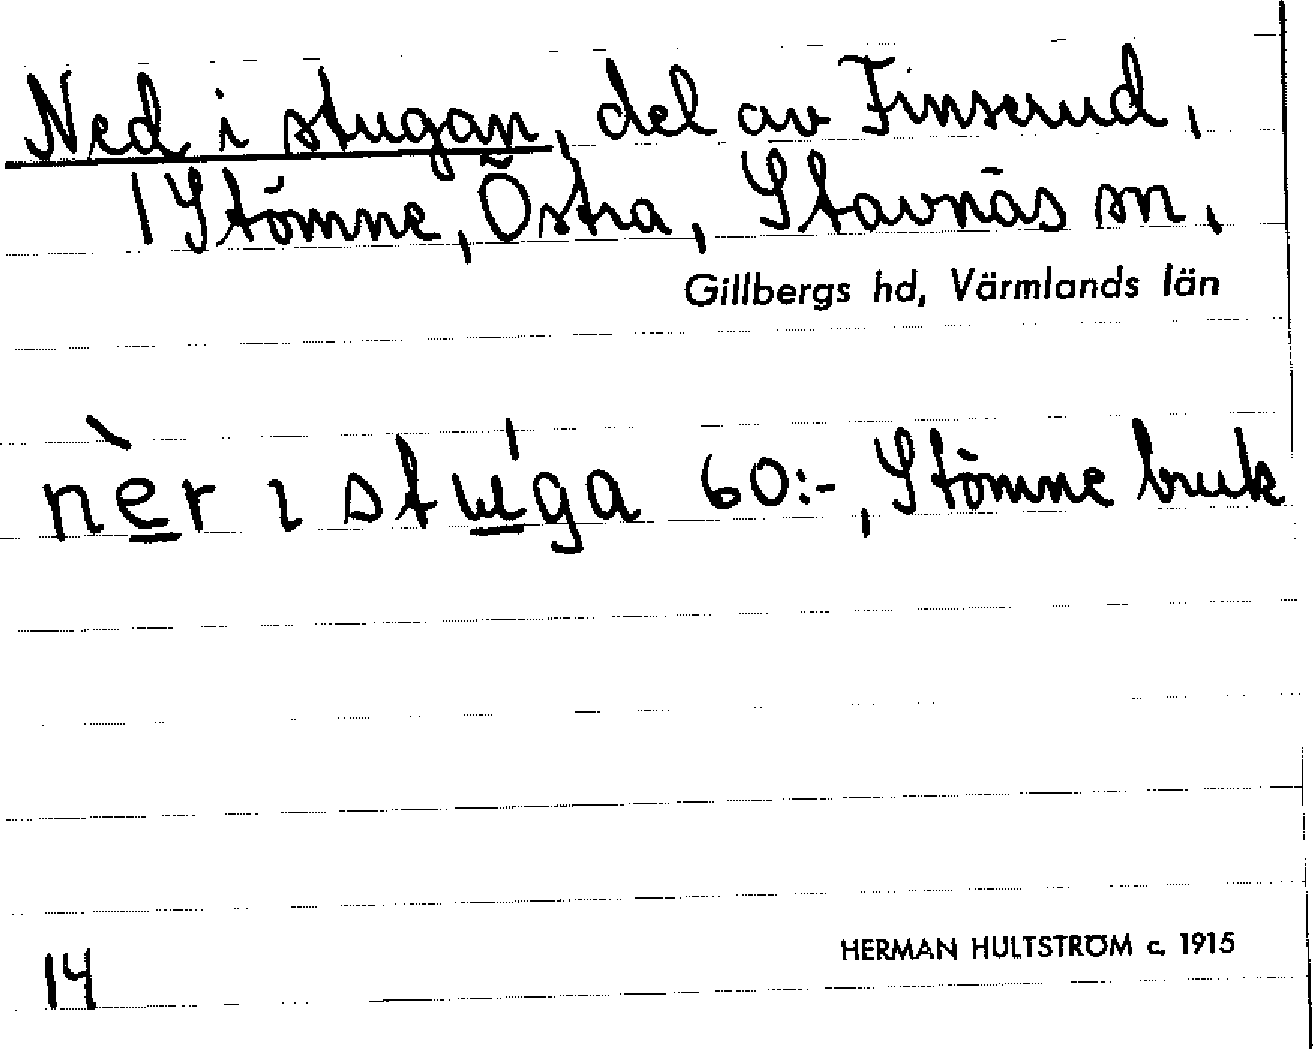 Ned i stugan, del av Finserud,
1 Stömne, Östra, Stavnäs sn,
Gillbergs hd, Värmlands län
nèr i stu̲'ga 60:-, Stömne bruk
14
HERMAN HULTSTRÖM c. 1915